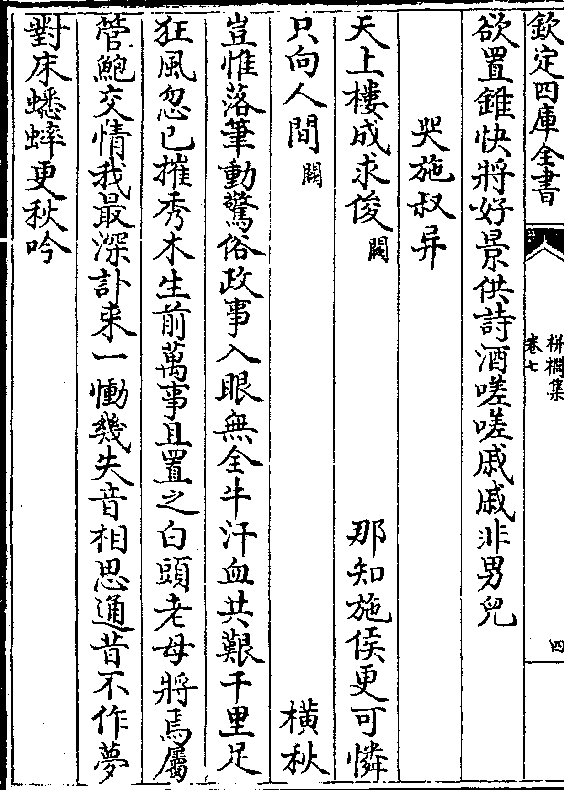 欽定四庫全書
栟櫚集
卷七
四
欲置錐快將好景供詩酒嗟嗟戚戚非男兒
哭施叔异
天上樓成求俊闕那知施侯更可憐
只向人間闕橫秋
豈惟落筆動驚俗政事入眼無全牛汗血共艱千里足
狂風忽已摧秀木生前萬事且置之白頭老母將焉屬
管鮑交情我最深訃来一慟幾失音相思通昔不作夢
對床蟋蟀更秋吟